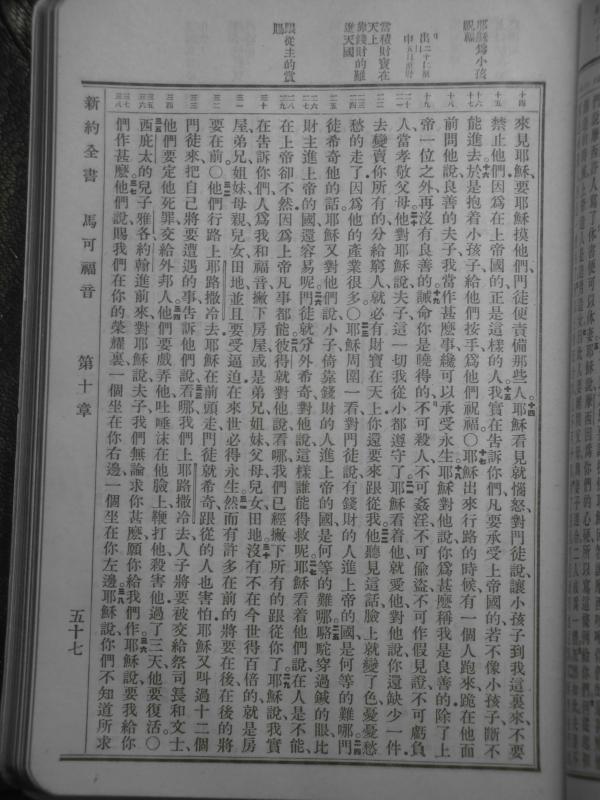 耶穌爲小孩
祝福
出二十12至
申五16至
當積財寶在
天上
靠錢財的難
進天國
跟從主的賞
賜
來見耶穌要耶穌摸他們門徒便責備那些人耶穌看見就惱怒對門徒說讓小孩子到我這裏來不要
禁止他們因爲在上帝國的正是這樣的人我實在告訴你們凡要承受上帝國的若不像小孩子斷不
能進去於是抱着小孩子給他們按手爲他們祝福○耶穌出來行路的時候有一個人跑來跪在他面
前問他說良善的夫子我當作甚麽事纔可以承受永生耶穌對他說你爲甚麽稱我是良善的除了上
帝一位之外再沒有良善的誡命你是曉得的不可殺人不可姦淫不可偷盜不可作假見證不可虧負
人當孝敬父母他對耶穌說夫子這一切我從小都遵守了耶穌看着他就愛他對他說你還缺少一件
去變賣你所有的分給窮人就必有財寶在天上你還要來跟從我他聽見這話臉上就變了色憂憂愁
愁的走了因爲他的產業很多○耶穌周圍一看對門徒說有錢財的人進上帝的國是何等的難哪門
徒希奇他的話耶穌又對他們說小子倚靠錢財的人進上帝的國是何等的難哪駱駝穿過鍼的眼比
財主進上帝的國還容易呢門徒就分外希奇對他說這樣誰能得救呢耶穌看着他們說在人是不能
在上帝卻不然因爲上帝凡事都能彼得就對他說看哪我們已經撇下所有的跟從你了耶穌說我實
在告訴你們人爲我和福音撇下房屋或是弟兄姐妹父母兒女田地沒有不在今世得百倍的就是房
屋弟兄姐妹母親兒女田地並且要受逼迫在來世必得永生然而有許多在前的將要在後在後的將
要在前○他們行路上耶路撒冷去耶穌在前頭走門徒就希奇跟從的人也害怕耶穌又叫過十二個
門徒來把自己將要遭遇的事告訴他們說看哪我們上耶路撒冷去人子將要被交給祭司長和文士
他們要定他死罪交給外邦人他們要戲弄他吐唾沫在他臉上鞭打他殺害他過了三天他要復活○
西庇太的兒子雅各約翰進前來對耶穌說夫子我們無論求你甚麽願你給我們作耶穌說要我給你
們作甚麽他們說賜我們在你的榮耀裏一個坐在你右邊一個坐在你左邊耶穌說你們不知道所求
新約全書　馬可福音　第十章　五十七